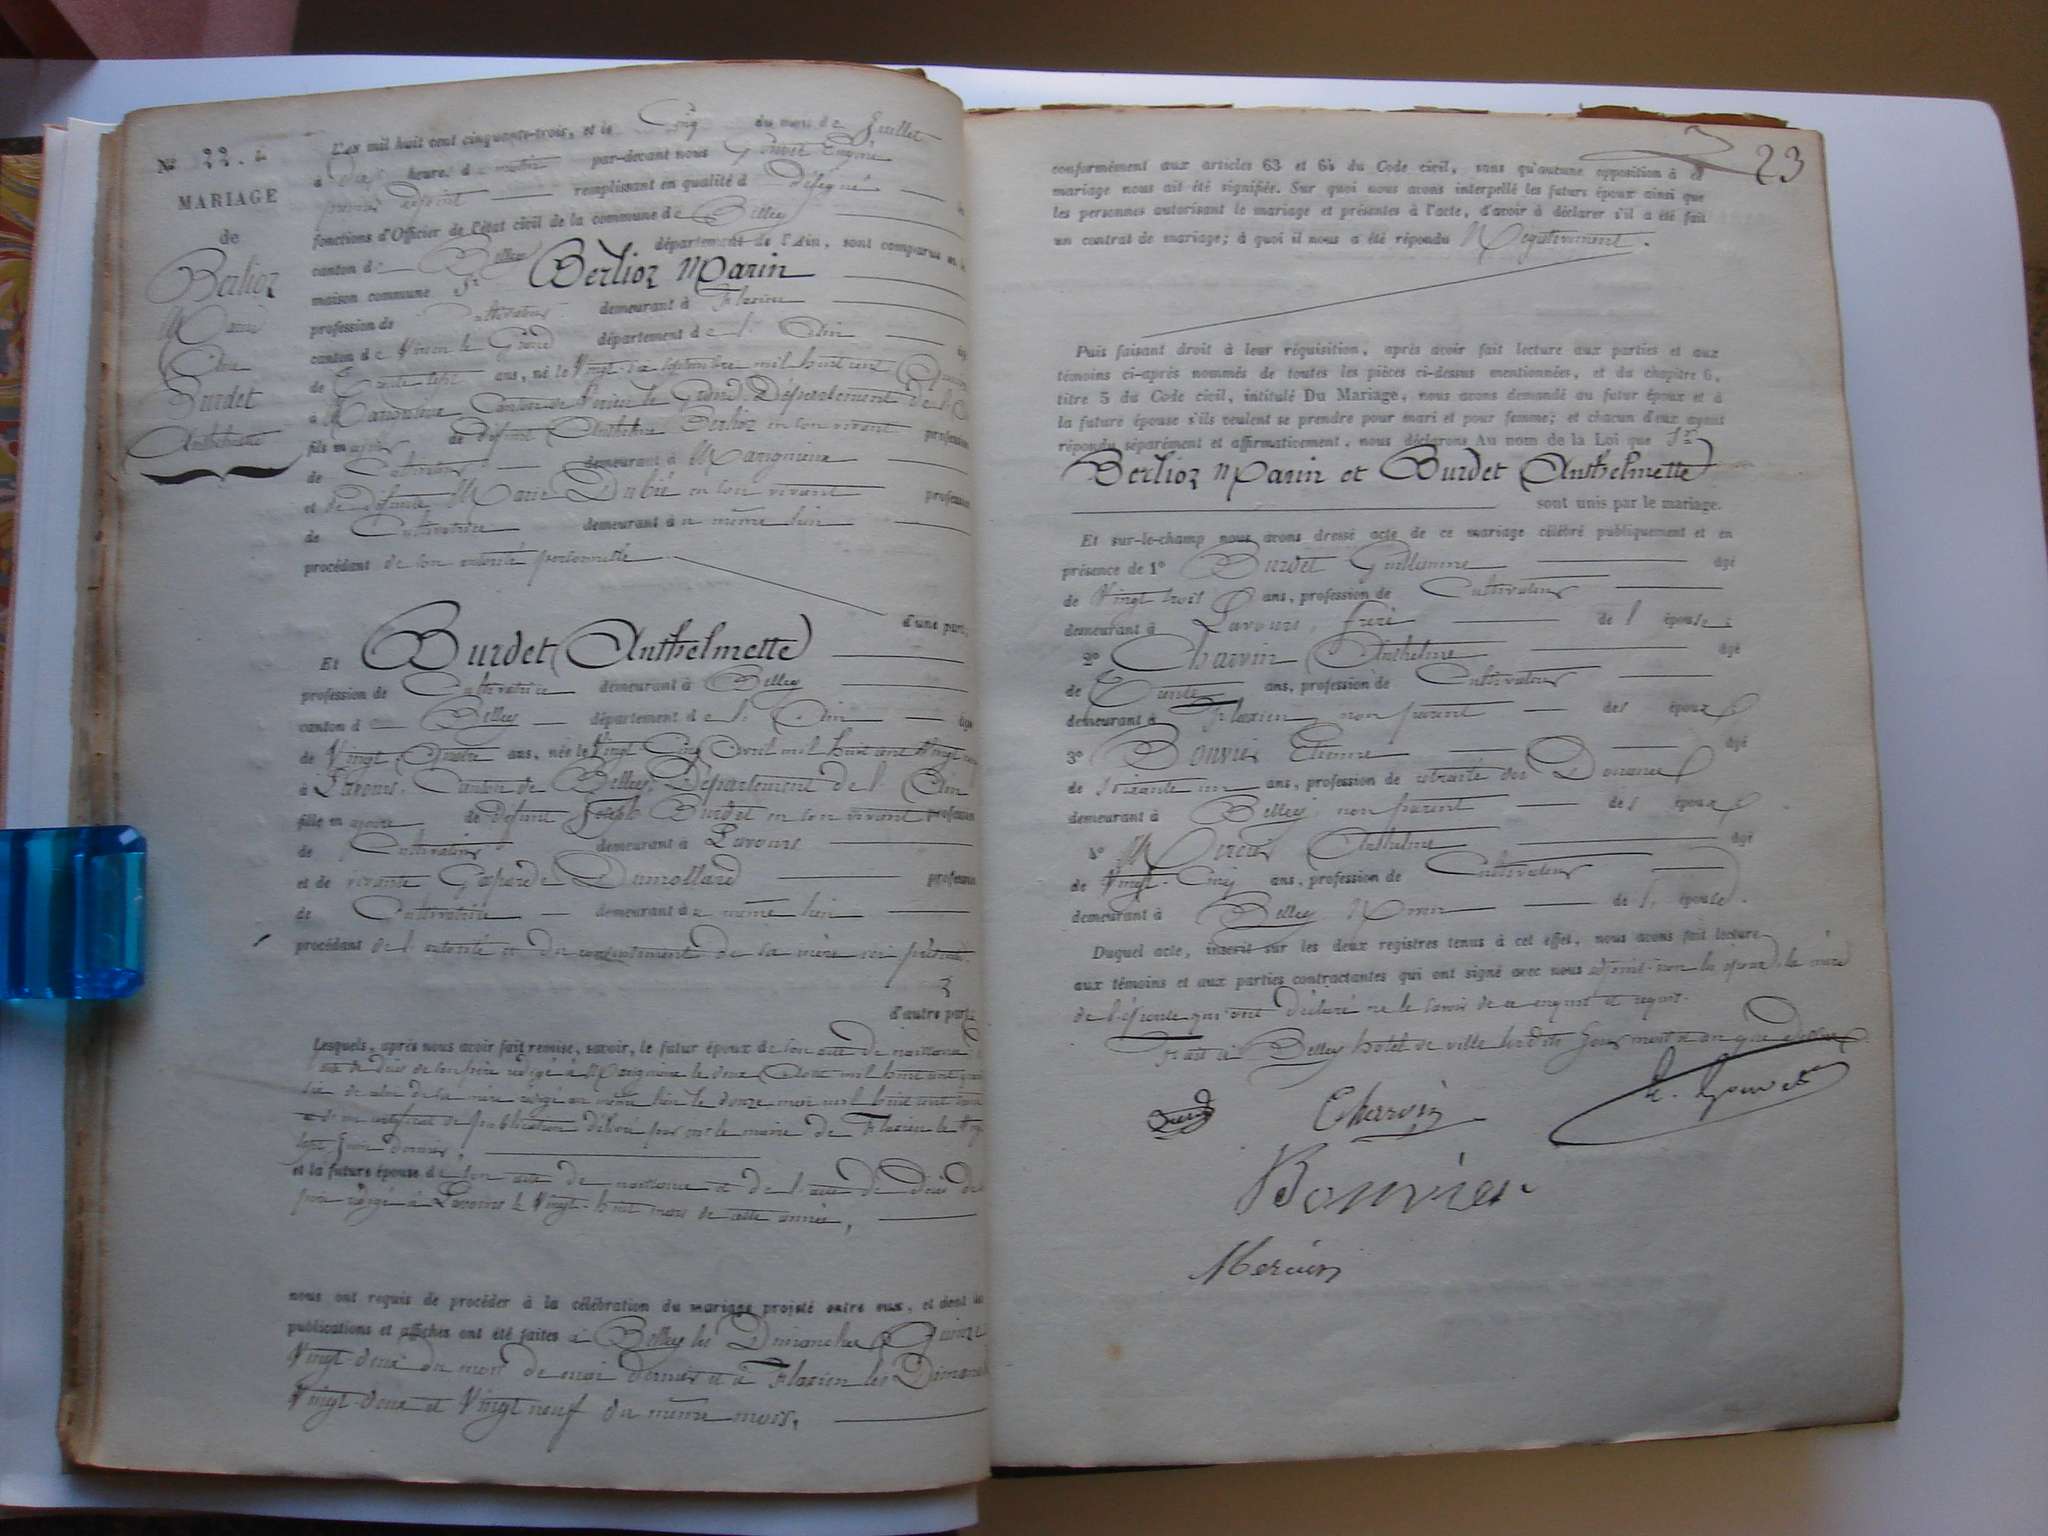 N° 22.
MARIAGE
de
Berlioz
Marin
Et
Burdet
Anthelmette
L'an mil huit cent cinquante-trois, et le Cinq du mois de Juillet
à Dix heures du matin par-devant nous Gouvet
premier adjoint remplissant en qualité de délégué les
fonctions d'Officier de l'état civil de la commune de Belley
canton de Belley département de l'Ain, sont comparus en la
maison commune Sr Berlioz Marin
profession de Cultivateur demeurant à Flaxieu
canton de Virieu le Grand département de l'Ain âgé
de Trente sept ans, né le Vingt six septembre mil huit cent Quinze
à Marignieu Canton de Virieu le Grand, Département de l'Ain
fils majeur de défunt Anthelme Berlioz en son vivant profession
de Cultivateur demeurant à Marignieux
et de défunte Marie Dubié en son vivant profession
de Cultivatrice demeurant à u même lieu
procédant de son autorité personnelle
d'une part,
Et Burdet Anthelmette
profession de Cultivatrice demeurant à Belley
canton de Belley département de l'Ain âgée
de Vingt Quatre ans, née le Vingt Cinq Avril mil huit cent Vingt neuf
à Lavours, Canton de Belley, Département de l'Ain
fille majeure de défunt Joseph Burdet en son vivant profession
de Cultivateur demeurant à Lavours
et de vivante Gasparde Dumollard profession
de Cultivatrice demeurant à u même lieu
procédant de l'autorité et du consentement de sa mère ici présente.
d'autre part.
Lesquels, après nous avoir fait remise, savoir, le futur époux de son acte de naissance
acte de décès de son père rédigé à Marignieu le deux Août mil huit cent
de celui de sa mère rédigé au même lieu le douze mars mil huit cent
et d'un certificat de publication délivré par Mr le maire de Flaxieu le Vingt
sept Juin dernier.
et la future épouse de son acte de naissance et de l'acte de décès de
père rédigé à Lavours le Vingt-huit mars de cette année,
nous ont requis de procéder à la célébration du mariage projeté entre eux, et dont les
publications et affiches ont été faites à Belley les Dimanches Quinze
Vingt-deux du mois de mai dernier et à Flaxieu les Dimanches
Vingt-deux et Vingt neuf du même mois.
23
conformément aux articles 63 et 64 du Code civil, sans qu'aucune opposition à ce
mariage nous ait été signifiée. Sur quoi nous avons interpellé les futurs époux ainsi que
les personnes autorisant le mariage et présentes à l'acte, d'avoir à déclarer s'il a été fait
un contrat de mariage; à quoi il nous a été répondu Négativement.
Puis faisant droit à leur réquisition, après avoir fait lecture aux parties et aux
témoins ci-après nommés de toutes les pièces ci-dessus mentionnées, et du chapitre 6,
titre 5 du Code civil, intitulé Du Mariage, nous avons demandé au futur époux et à
la future épouse s'ils veulent se prendre pour mari et pour femme; et chacun d'eux ayant
répondu séparément et affirmativement, nous déclarons Au nom de la Loi que Sr
Berlioz Marin et Burdet Anthelmette
sont unis par le mariage.
Et sur-le-champ nous avons dressé acte de ce mariage célébré publiquement et en
présence de 1° Burdet Guillaume âgé
de Vingt trois ans, profession de Cultivateur
demeurant à Lavours, frère de l'épouse;
2° Charvin Anthelme âgé
de Trente ans, profession de Cultivateur
demeurant à Flaxieu non parent des époux
3° Bouvier Etienne âgé
de soixante un ans, profession de retraité des Douanes
demeurant à Belley non parent des époux
4° Mercier Anthelme âgé
de Vingt-Cinq ans, profession de Cultivateur
demeurant à Belley de l'épouse.
Duquel acte, inscrit sur les deux registres tenus à cet effet, nous avons fait lecture
aux témoins et aux parties contractantes qui ont signé avec nous adjoint non les époux, la mère
de l'épouse qui ont déclaré ne le savoir de ce enquis et requis.
Fait à Belley hôtel de ville lesdits jour mois et an que dessus.
Charvin
E. Gouvet
Bouvier
Mercier